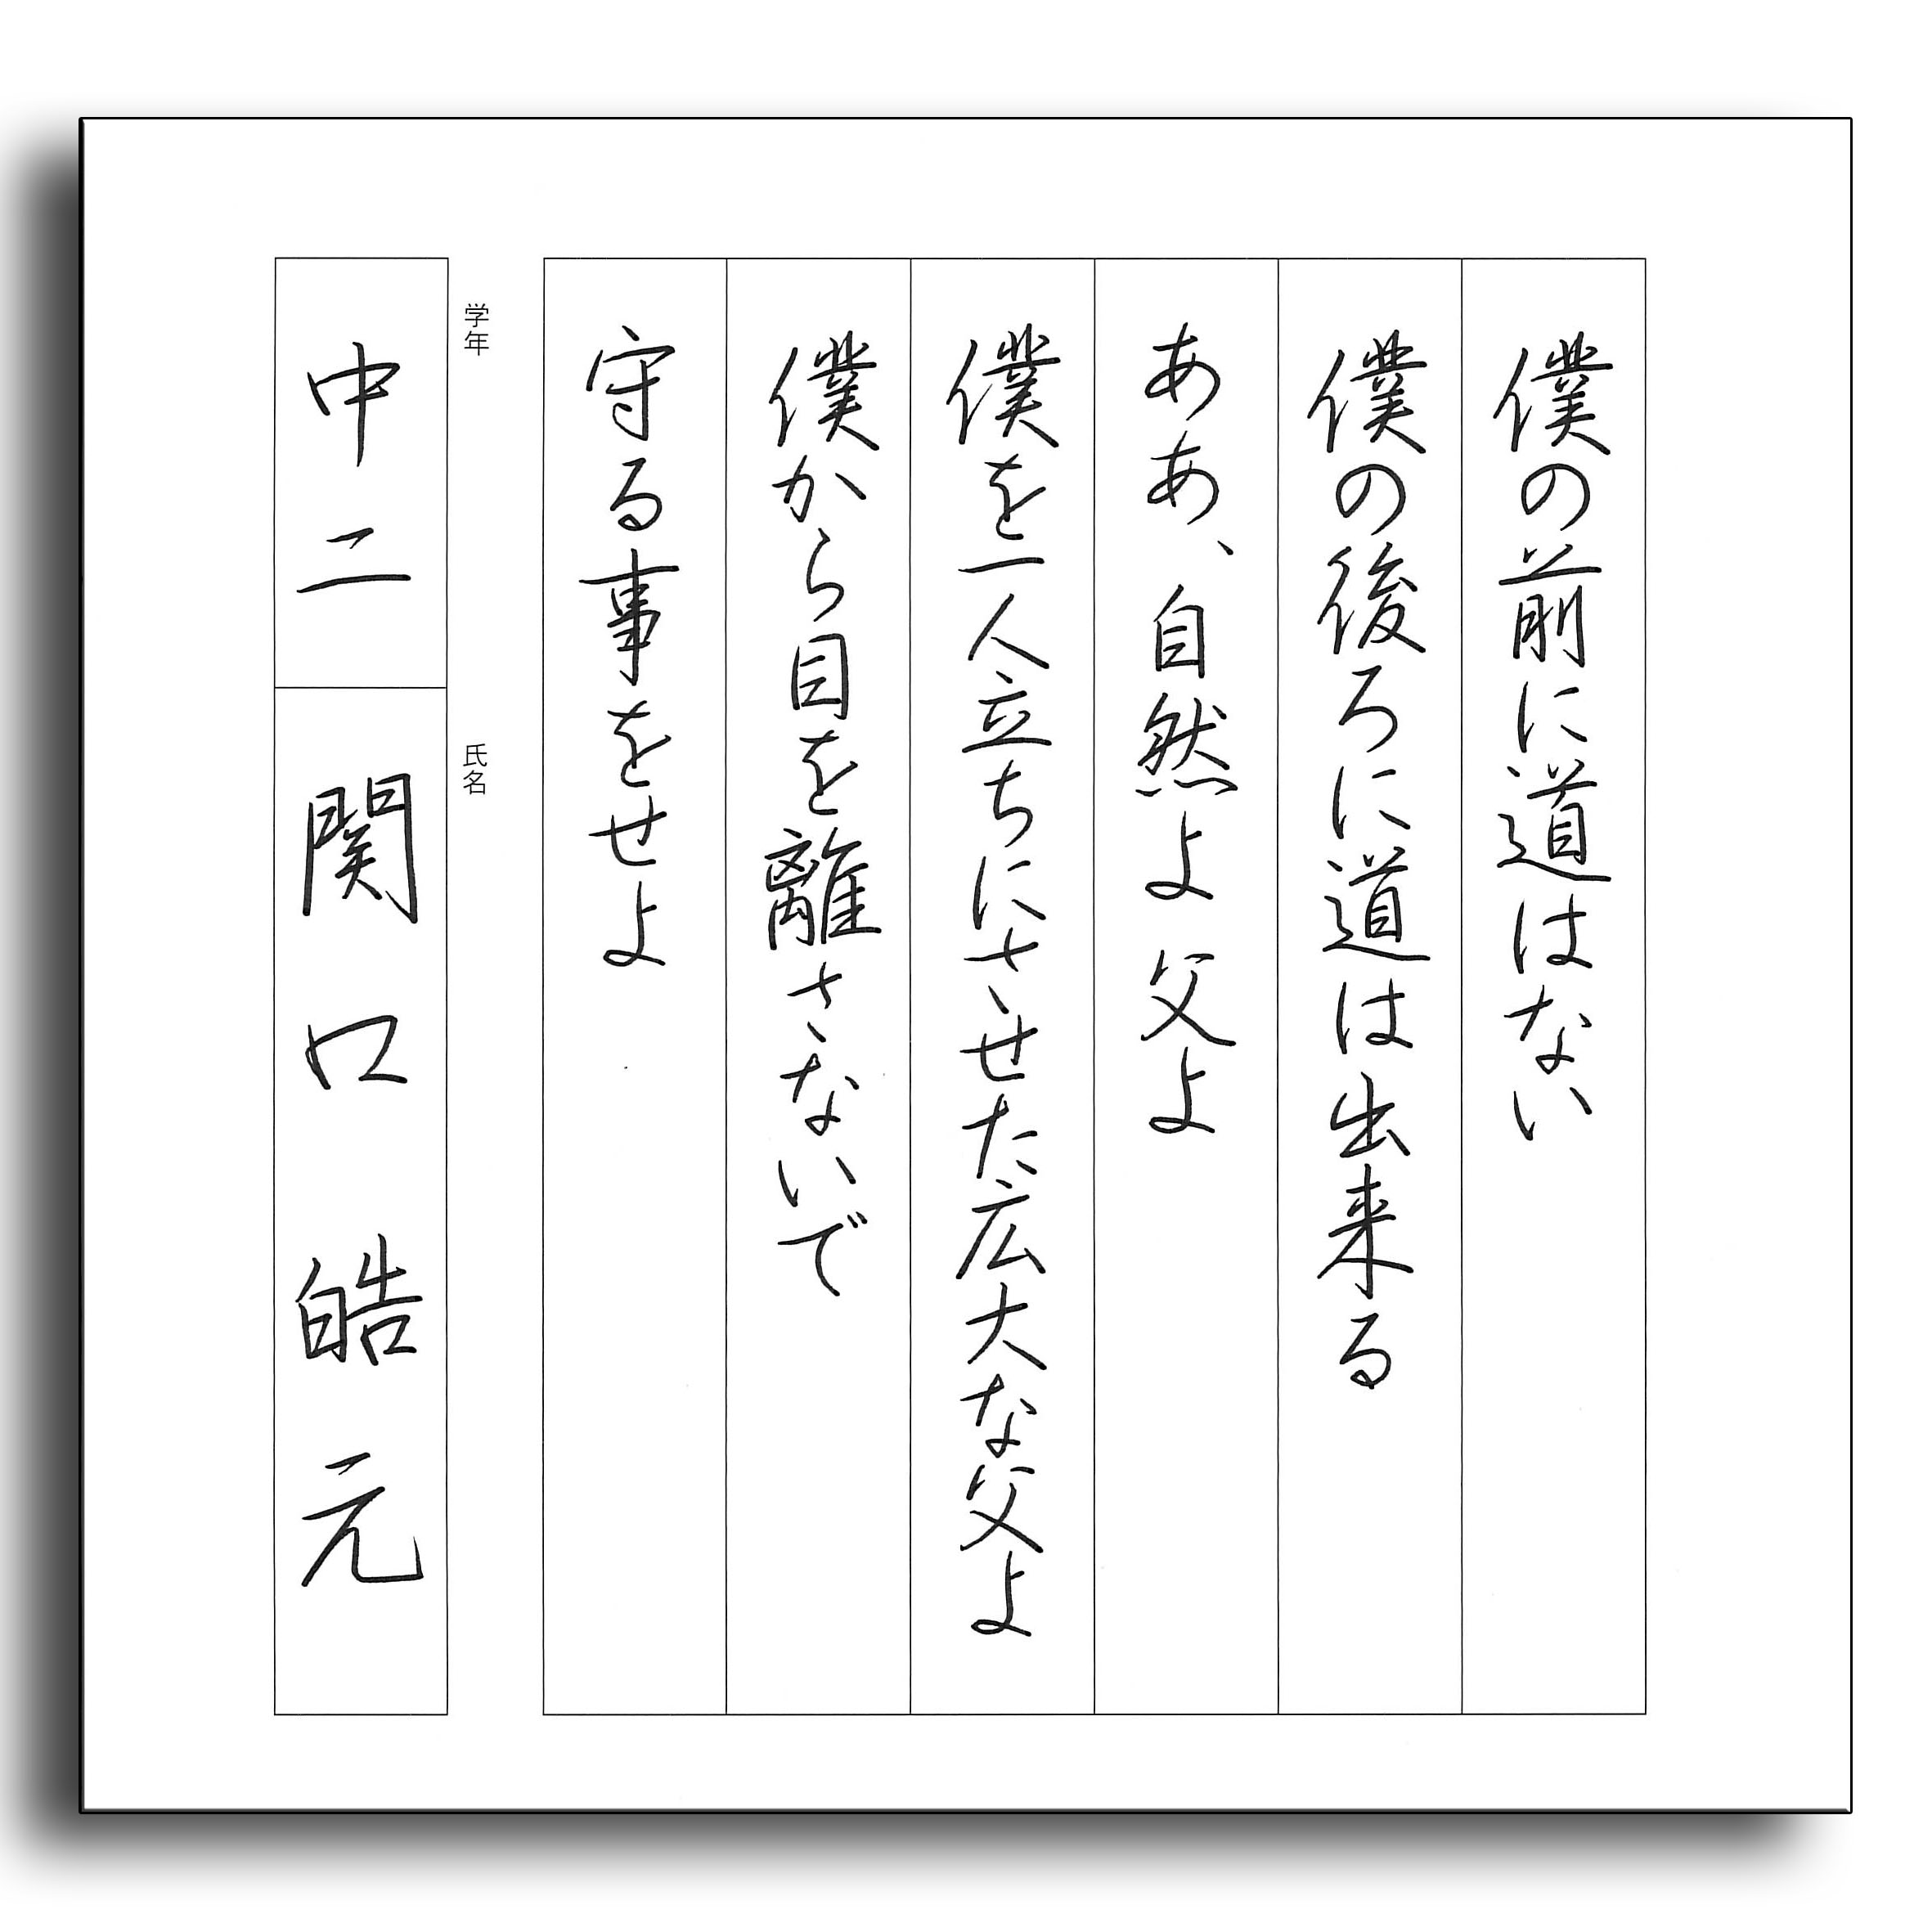 僕の前に道はない
僕の後ろに道は出来る
ああ、自然よ父よ
僕を一人立ちにさせた広大な父よ
僕から目を離さないで
守る事をせよ
学年
中二
氏名
関口皓元